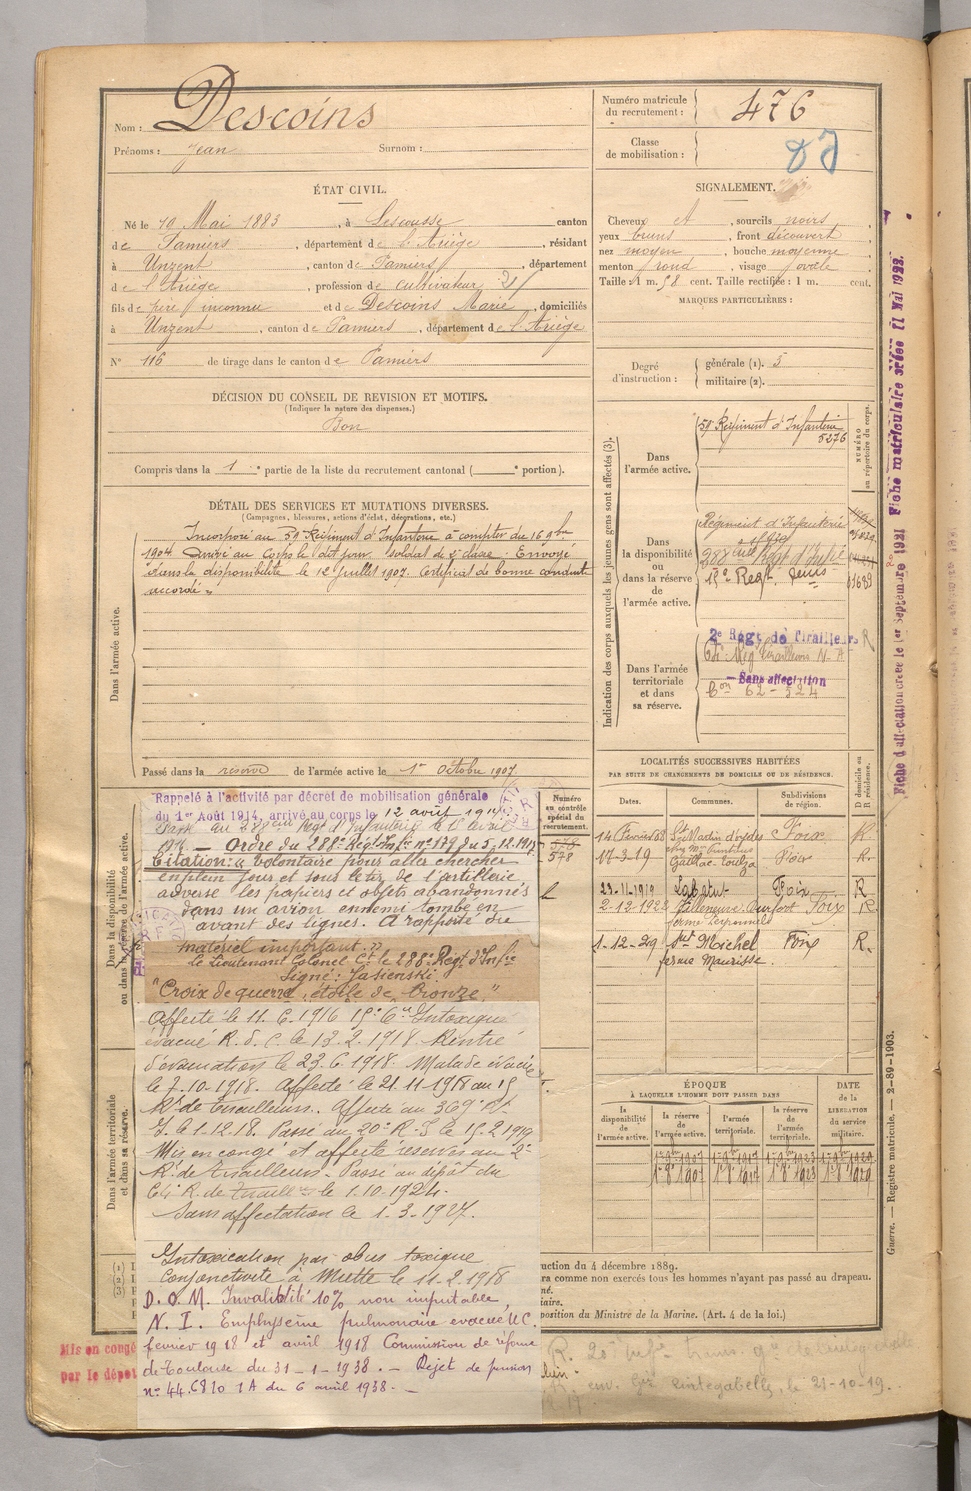 Nom : Descoins
Prénoms : Jean Surnom :
ÉTAT CIVIL.
Né le 19 Mai 1883, à Lescousse canton
de Pamiers, département de l'Ariège, résidant
à Unzent, canton de Pamiers, département
de l'Ariège, profession de cultivateur
fils de père inconnu et de Descoins Marie, domiciliés
à Unzent, canton de Pamiers, département de l'Ariège
N° 116 de tirage dans le canton de Pamiers
DÉCISION DU CONSEIL DE REVISION ET MOTIFS.
(Indiquer la nature des dispenses.)
Bon
Compris dans la 1e partie de la liste du recrutement cantonal (e portion).
DÉTAIL DES SERVICES ET MUTATIONS DIVERSES.
(Campagnes, blessures, actions d'éclat, décorations, etc.)
Dans l'armée active.
Incorporé au 59e Régiment d'Infanterie à compter du 16 9bre
1904. Arrivé au Corps le dit jour, soldat de 2e classe. Envoyé
dans la disponibilité le 12 juillet 1907. Certificat de bonne conduite
accordé.
Passé dans la réserve de l'armée active le 1er Octobre 1907
Dans la disponibilité
ou dans la réserve de l'armée active.
Rappelé à l'activité par décret de mobilisation générale
du 1er Août 1914, arrivé au corps le 12 août 1914
Passé au 288ème Regt d'Infanterie le
Ordre du 288e Régt Infie n° 179 du 5.12.1915
Citation: « Volontaire pour aller chercher
en plein jour et sous le tir de l'artillerie
adverse les papiers et objets abandonnés
dans un avion ennemi tombé en
avant des lignes. A rapporté du
matériel important. »
le Lieutenant Colonel Ct le 288e Regt d'Infie
Signé : Jasienski.
"Croix de guerre, étoile de bronze."
Affecté le 11.6.1916 Intoxiqué
évacué R. d. C. le 13.2.1918. Rentré
d'évacuation le 23.6.1918. Malade évacué
le 7-10-1918. Affecté le 21-11-1918 au 15
Rt de Tirailleurs. Affecté au 369e Rt
I. le 1.12.18. Passé au 20e R.I. le 15.2.1919
Mis en congé et affecté réserves au 2e
Rt de Tirailleurs. Passé au dépôt du
R. de Tirailleurs le 1.10.1924.
Sans affectation le 1.3.1927.
Dans l'armée territoriale
et dans sa réserve.
Intoxication par obus toxique
Conjonctivite à Muette le 11.2.1918
D.O.M. Invalidité 10% non imputable
N.I. Emphysème pulmonaire evacué U.C.
fevrier 1918 et avril 1918 Commission de réforme
de Toulouse du 31-1-1938. - Rejet de pension
n° 44.6810 1A du 6 avril 1938.
Mis en congé
par le dépôt
Numéro matricule
du recrutement : 476
Classe
de mobilisation :
SIGNALEMENT.
Cheveux et, sourcils noirs,
yeux bruns, front découvert,
nez moyen, bouche moyenne,
menton rond, visage ovale
Taille : 1 m. 58 cent. Taille rectifiée : 1 m. cent.
MARQUES PARTICULIÈRES :
Degré
d'instruction :
générale (1). 3
militaire (2).
Indication des corps auxquels les jeunes gens sont affectés (3).
NUMÉRO
au répertoire du corps.
Dans
l'armée active.
59e Régiment d'Infanterie
5276
Dans
la disponibilité
ou
dans la réserve
de
l'armée active.
Régiment d'Infanterie
288ème Regt d'Infie
15e Regt
Dans l'armée
territoriale
et dans
sa réserve.
2e Regt de Tirailleurs R
Tirailleurs N-A
Sans affectation
62-524
LOCALITÉS SUCCESSIVES HABITÉES
PAR SUITE DE CHANGEMENTS DE DOMICILE OU DE RÉSIDENCE.
Dates. Communes. Subdivisions
de région.
D domicile ou
R résidence.
14 Février 08 St Martin d'oydes Foix R.
17-3-19 Gaillac-Toulza Foix R.
23-11-1919 Labatut Foix R
2-12-1922 Villeneuve-Durfort Foix R
1-12-29 St Michel Foix R.
ferme Maurisse.
Numéro
au contrôle
spécial du
recrutement.
578
578
ÉPOQUE
À LAQUELLE L'HOMME DOIT PASSER DANS
la
disponibilité
de
l'armée active.
la réserve
de
l'armée active.
l'armée
territoriale.
la réserve
de
l'armée
territoriale.
DATE
de la
LIBÉRATION
du service
militaire.
1er 8bre 1907
1er 8bre 1923
ruction du 4 décembre 1889.
ra comme non exercés tous les hommes n'ayant pas passé au drapeau.
position du Ministre de la Marine. (Art. 4 de la loi.)
Cintegabelle, le 21-10-19.
Fiche d'affectation créée le 1er Septembre 1921
Fiche matriculaire créée 11 Mai 1923.
Guerre. — Registre matricule. — 2-89-1903.